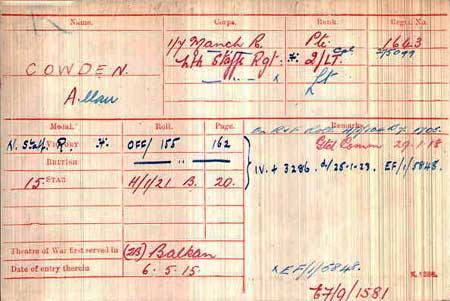 Name. Corps. Rank. Regtl. No.
COWDEN. 1/7 Manch R. Pte 1643
Nth Staffs Rgt. * 2/LT.
Allan Lt
Medal. Roll. Page. Remarks.
N. Staff R. * VICTORY OFF/155 162
BRITISH
Gtd Comm 29-1-18
IV. + 3286. d/25-1-23. EF/1/5848.
15 STAR H/1/21 B. 20.
Theatre of War first served in (2B) Balkan
Date of entry therein 6.5.15. EF/1/5848. K. 1380.
67/9/1581